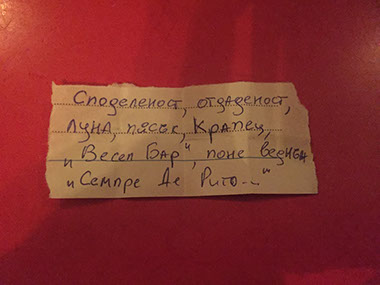 Споделеност, отдаденост,
Луна, пясък, Крапец,
„Весел Бар", поне веднъж
„Семпре Де Рито..."